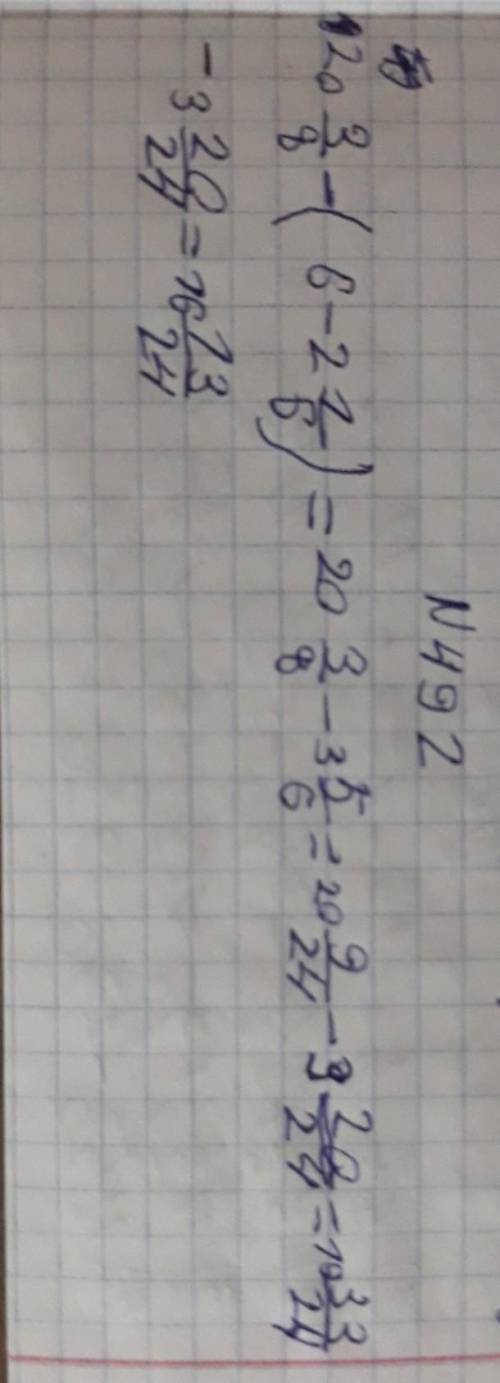 N 492
20 3/8 - ( 6 - 2 1/6 ) = 20 3/8 - 3 5/6 = 20 9/24 - 3 20/24 = 19 33/24
- 3 20/24 = 16 13/24